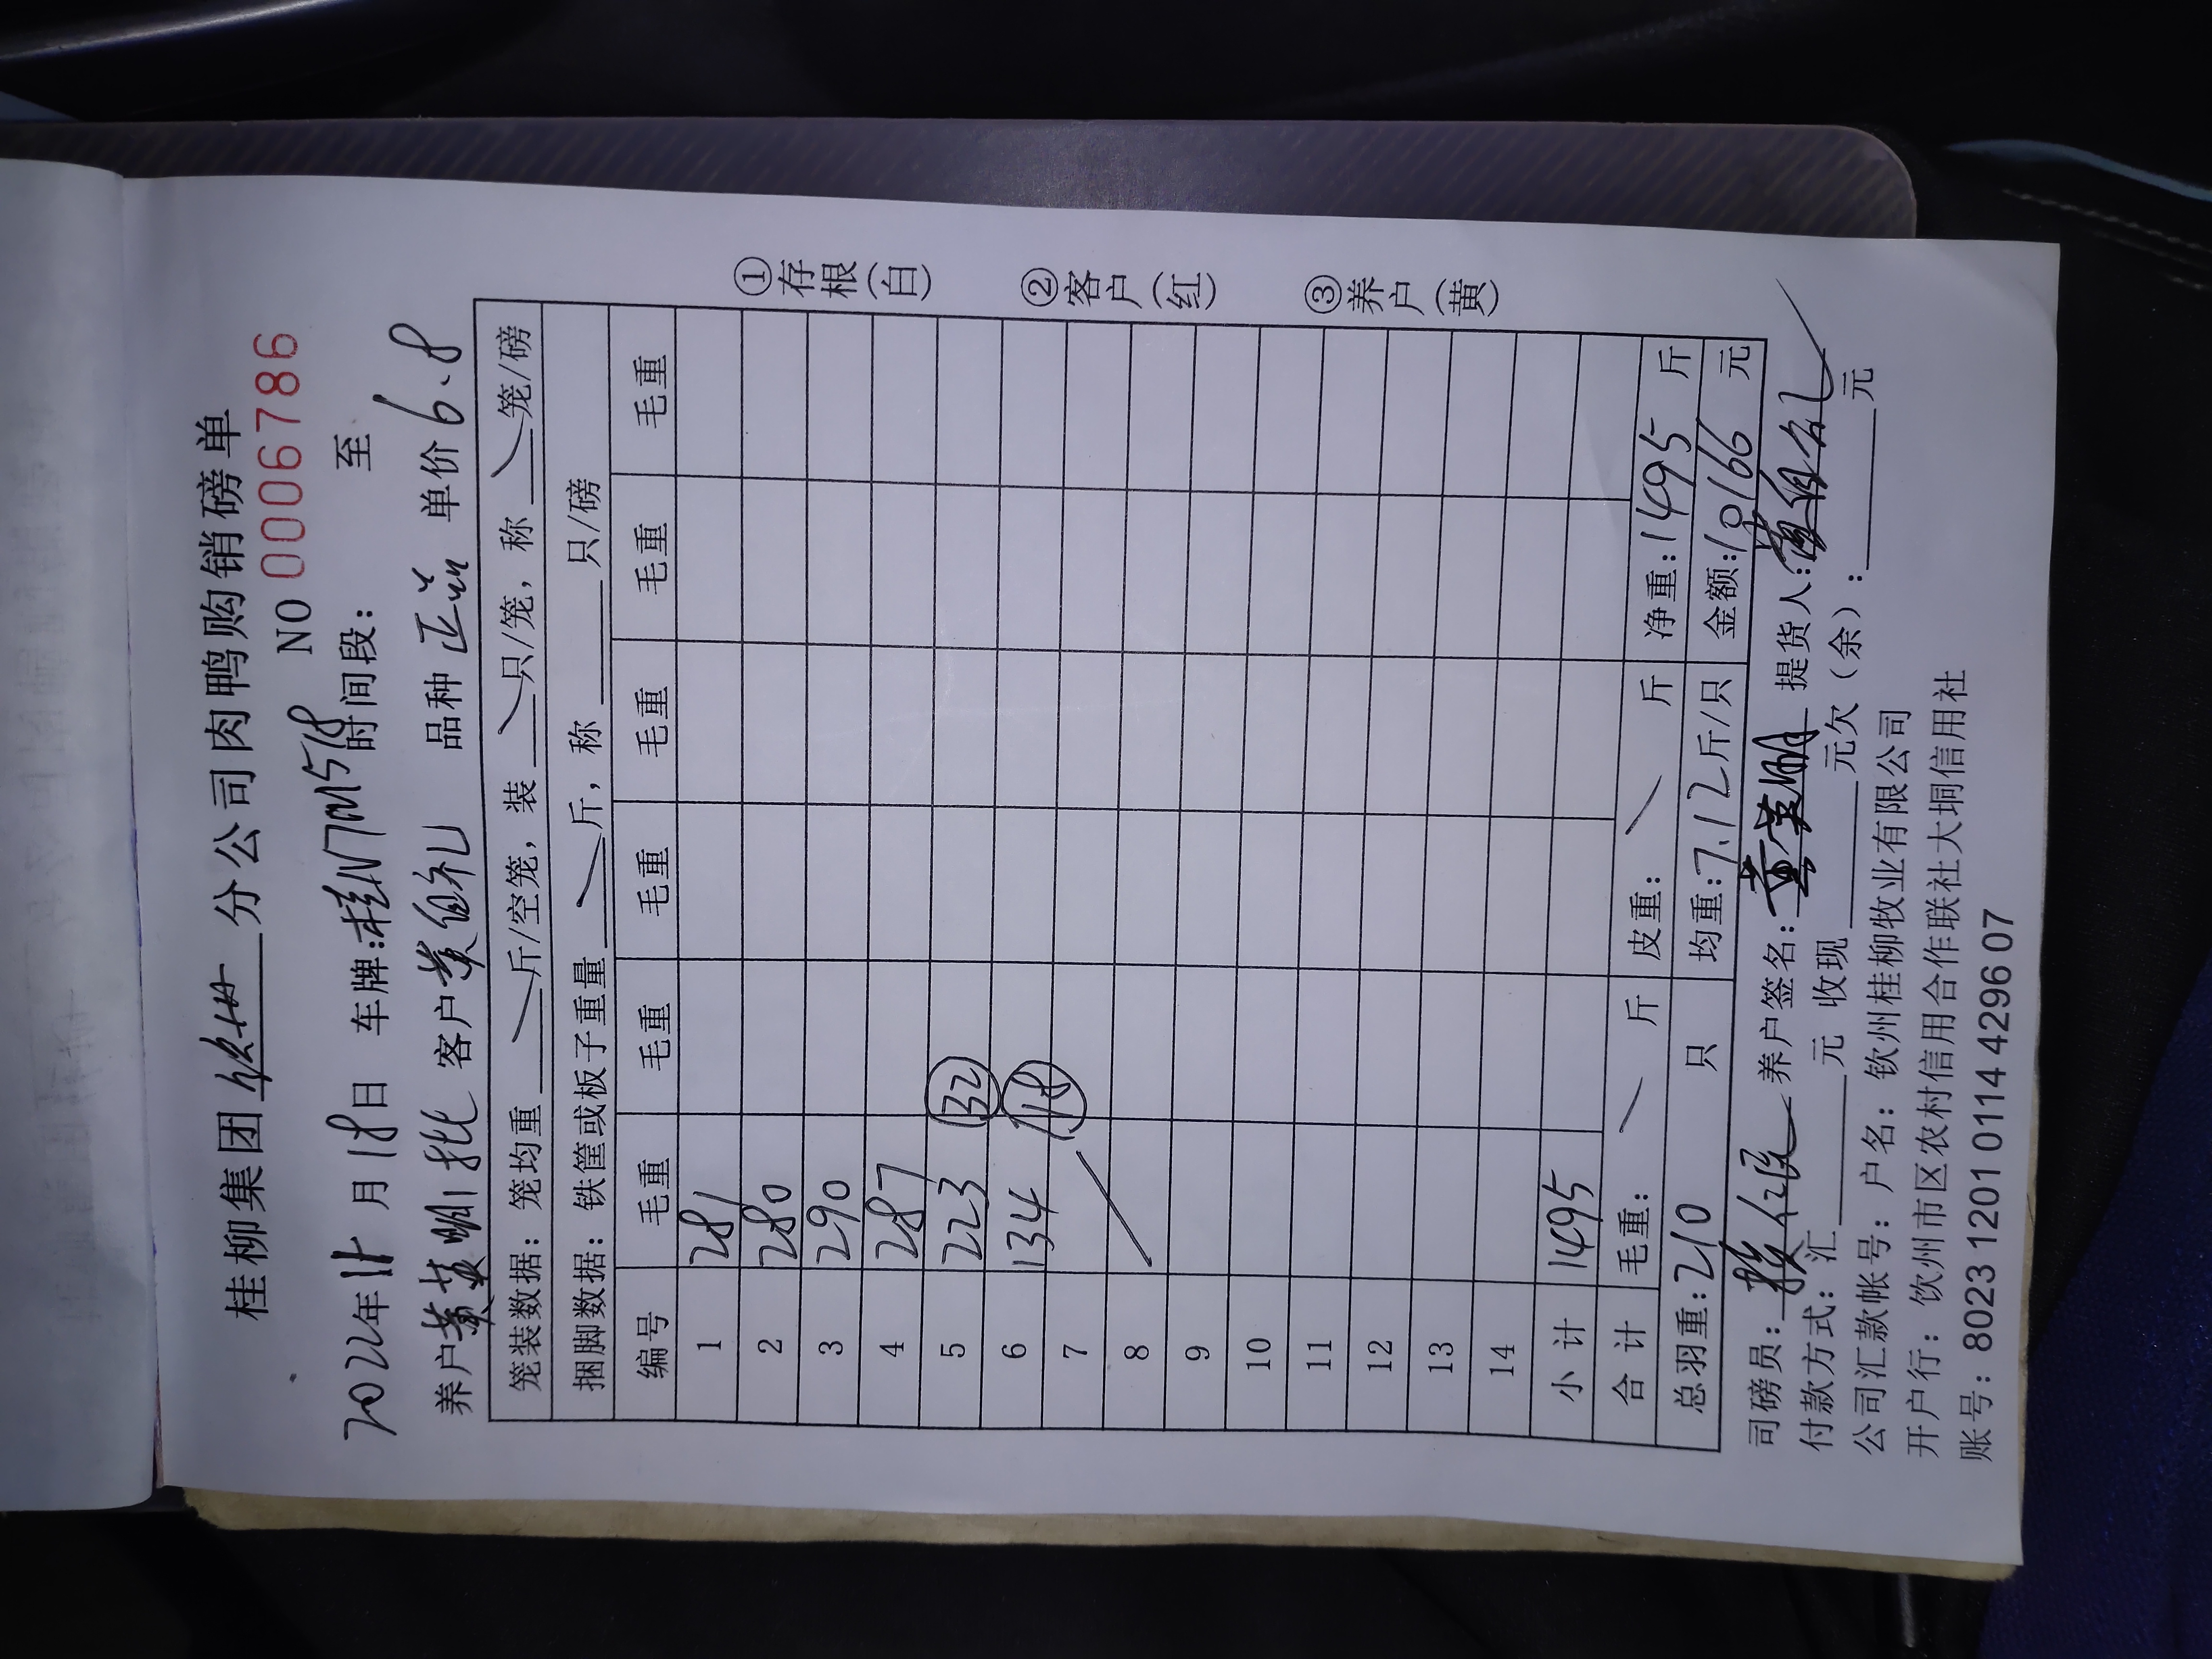 桂柳集团 分公司肉鸭购销磅单
NO 0006786
2022年11月18日 车牌:桂N7M578 时间段: 至
养户黄英明1批 客户黄自礼 品种 单价6.8
笼装数据:笼均重 斤/空笼,装 只/笼,称 笼/磅
捆脚数据:铁筐或板子重量 斤,称 只/磅
编号 毛重 毛重 毛重 毛重 毛重 毛重
1 281
2 280
3 290
4 287
5 223 32
6 134 18
7
8
9
10
11
12
13
14
小计 1495
合计 毛重: 斤 皮重: 斤 净重:1495 斤
总羽重:210 只 均重:7.12斤/只 金额:10166 元
司磅员: 养户签名:黄英明 提货人:
付款方式:汇 元 收现 元欠(余): 元
公司汇款帐号:户名:钦州桂柳牧业有限公司
开户行:饮州市区农村信用合作联社大垌信用社
账号:8023 1201 0114 4296 07
①存根(白)
②客户(红)
③养户(黄)